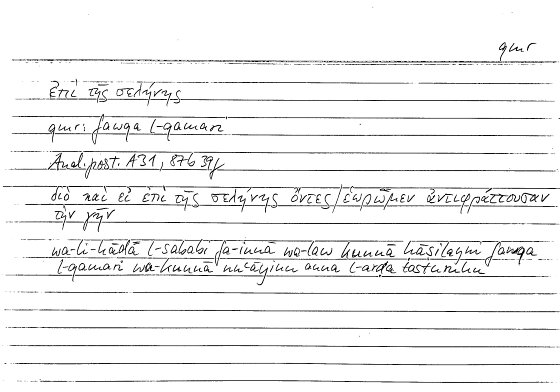 qmr
ἐπὶ τῆς σελήνης
qmr: fawqa l-qamari
Anal. post. A31, 87b39f
διὸ καὶ εἰ ἐπὶ τῆς σελήνης ὄντες/ἑωρῶμεν ἀντιφράττουσαν
τὴν γῆν
wa-li-hāḏā l-sababi fa-innā wa-law kunnā ḥāṣilayni fawqa
l-qamari wa-kunnā nuʿāyinu anna l-arḍa tasturuhu